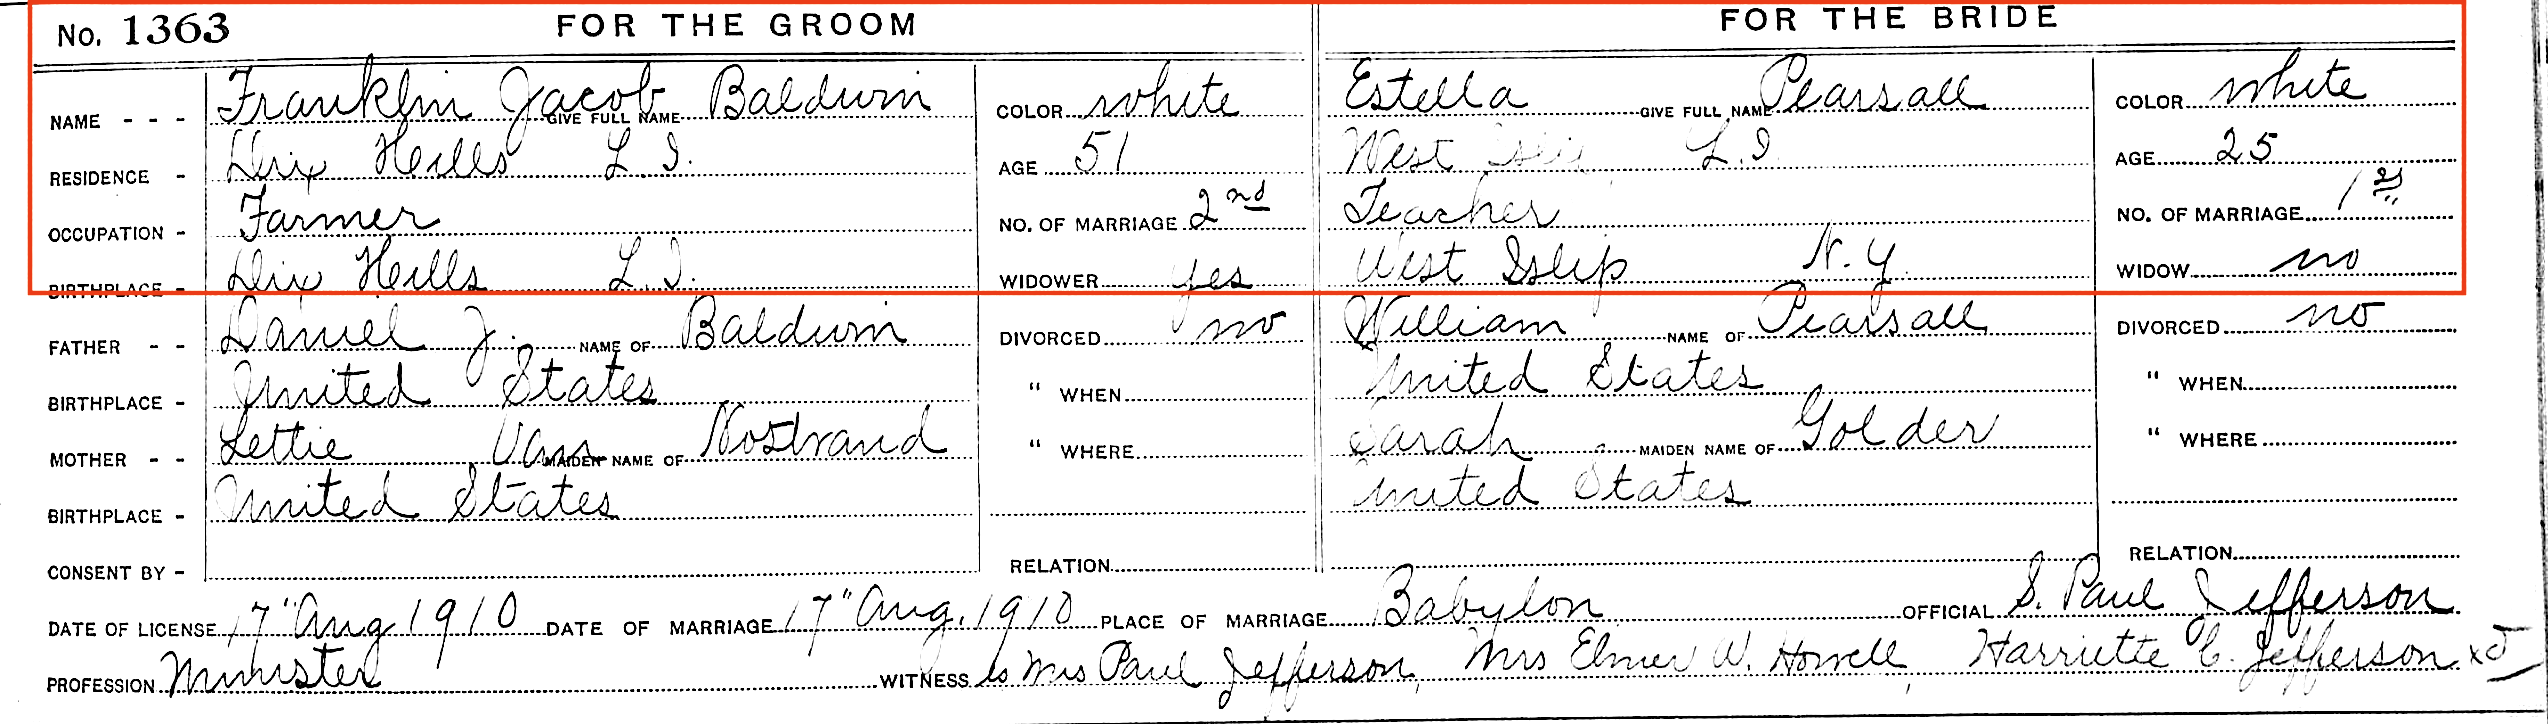 No. 1363 FOR THE GROOM FOR THE BRIDE
NAME - - - Franklin Jacob Baldwin GIVE FULL NAME COLOR white Estella Pearsall GIVE FULL NAME COLOR white
RESIDENCE - Dix Hills L.I. AGE 51 West Islip L.I AGE 25
OCCUPATION - Farmer NO. OF MARRIAGE 2nd Teacher NO. OF MARRIAGE 1st
BIRTHPLACE - Dix Hills L.I. WIDOWER yes West Islip N.Y. WIDOW no
FATHER - - Daniel J. NAME OF Baldwin DIVORCED no William NAME OF Pearsall DIVORCED no
BIRTHPLACE - United States " WHEN United States " WHEN
MOTHER - - Lettie Van MAIDEN NAME OF Nostrand " WHERE Sarah MAIDEN NAME OF Golder " WHERE
BIRTHPLACE - United States United States
CONSENT BY - RELATION RELATION
DATE OF LICENSE 17" Aug 1910 DATE OF MARRIAGE 17" Aug. 1910 PLACE OF MARRIAGE Babylon OFFICIAL S. Paul Jefferson
PROFESSION Minister WITNESS Mrs Paul Jefferson, Mrs Elmer W. Howell, Harriette C. Jefferson